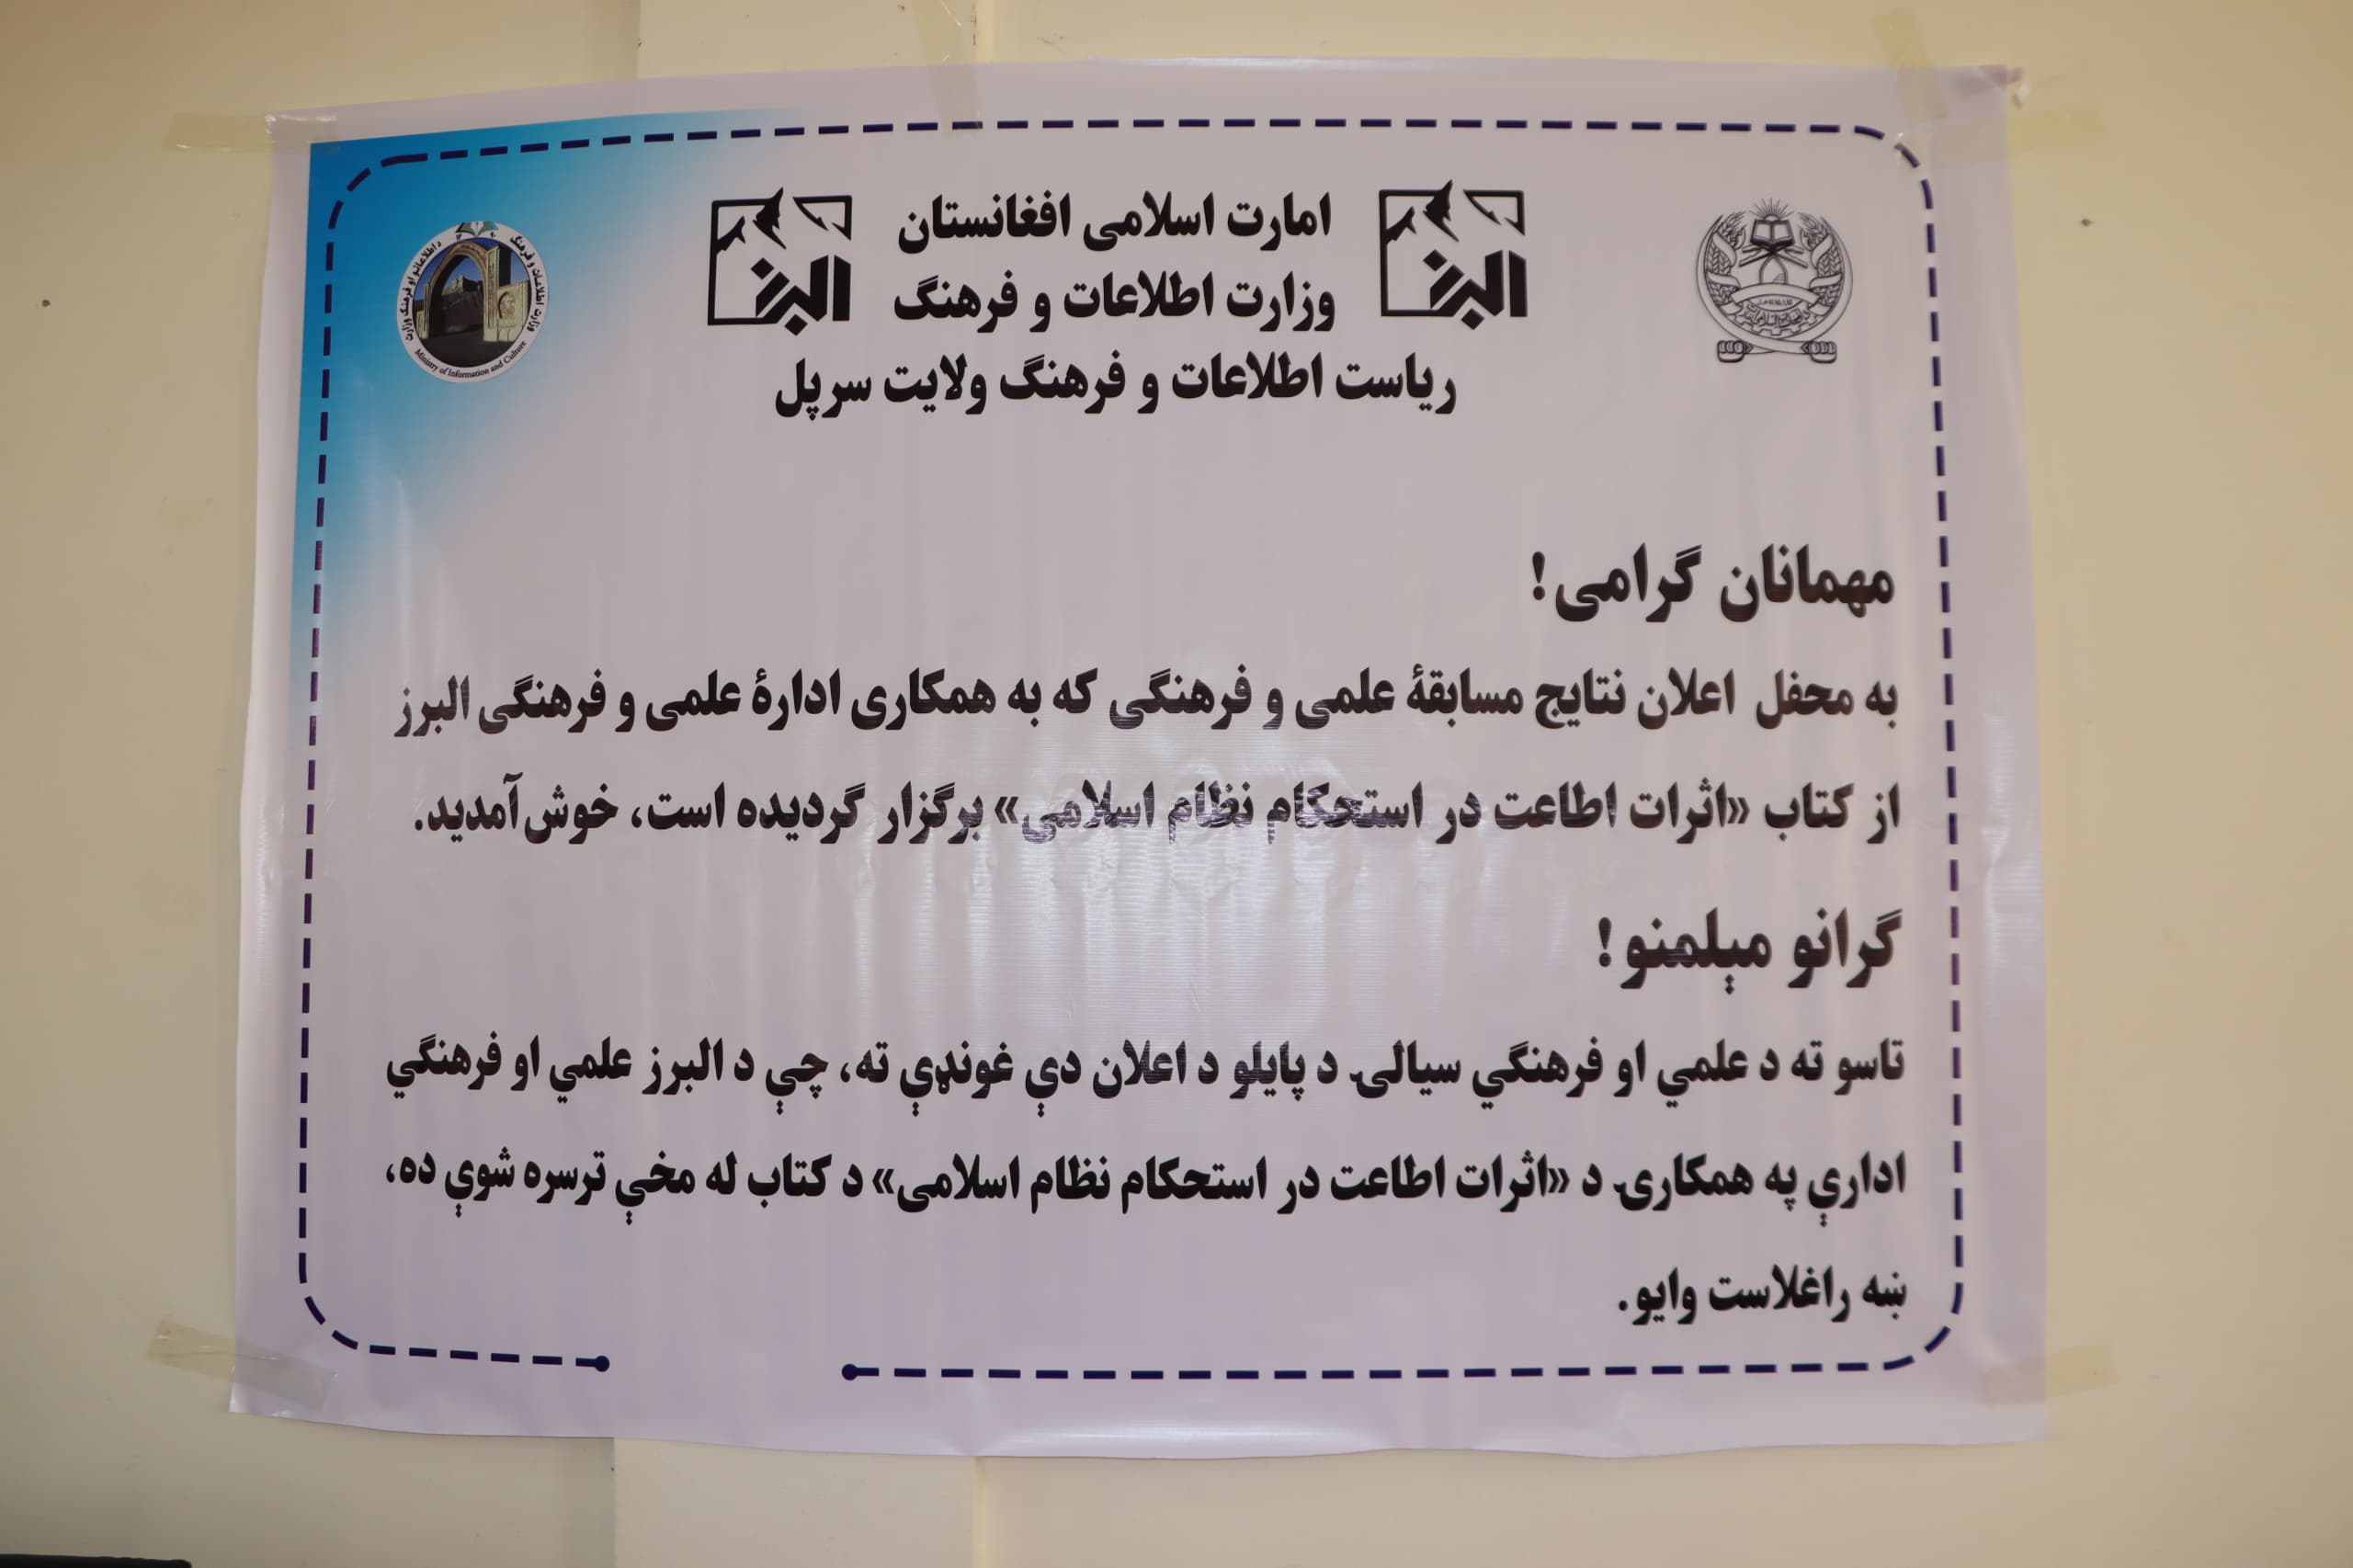 امارت اسلامی افغانستان
وزارت اطلاعات و فرهنگ
ریاست اطلاعات و فرهنگ ولایت سرپل
البرز
البرز
Ministry of Information and Culture
مهمانان گرامی!
به محفل اعلان نتایج مسابقهٔ علمی و فرهنگی که به همکاری ادارهٔ علمی و فرهنگی البرز
از کتاب «اثرات اطاعت در استحکام نظام اسلامی» برگزار گردیده است، خوش‌آمدید.
گرانو مېلمنو!
تاسو ته د علمي او فرهنگي سیالۍ د پایلو د اعلان دې غونډې ته، چې د البرز علمي او فرهنگي
ادارې په همکارۍ د «اثرات اطاعت در استحکام نظام اسلامی» د کتاب له مخې ترسره شوې ده،
ښه راغلاست وایو.